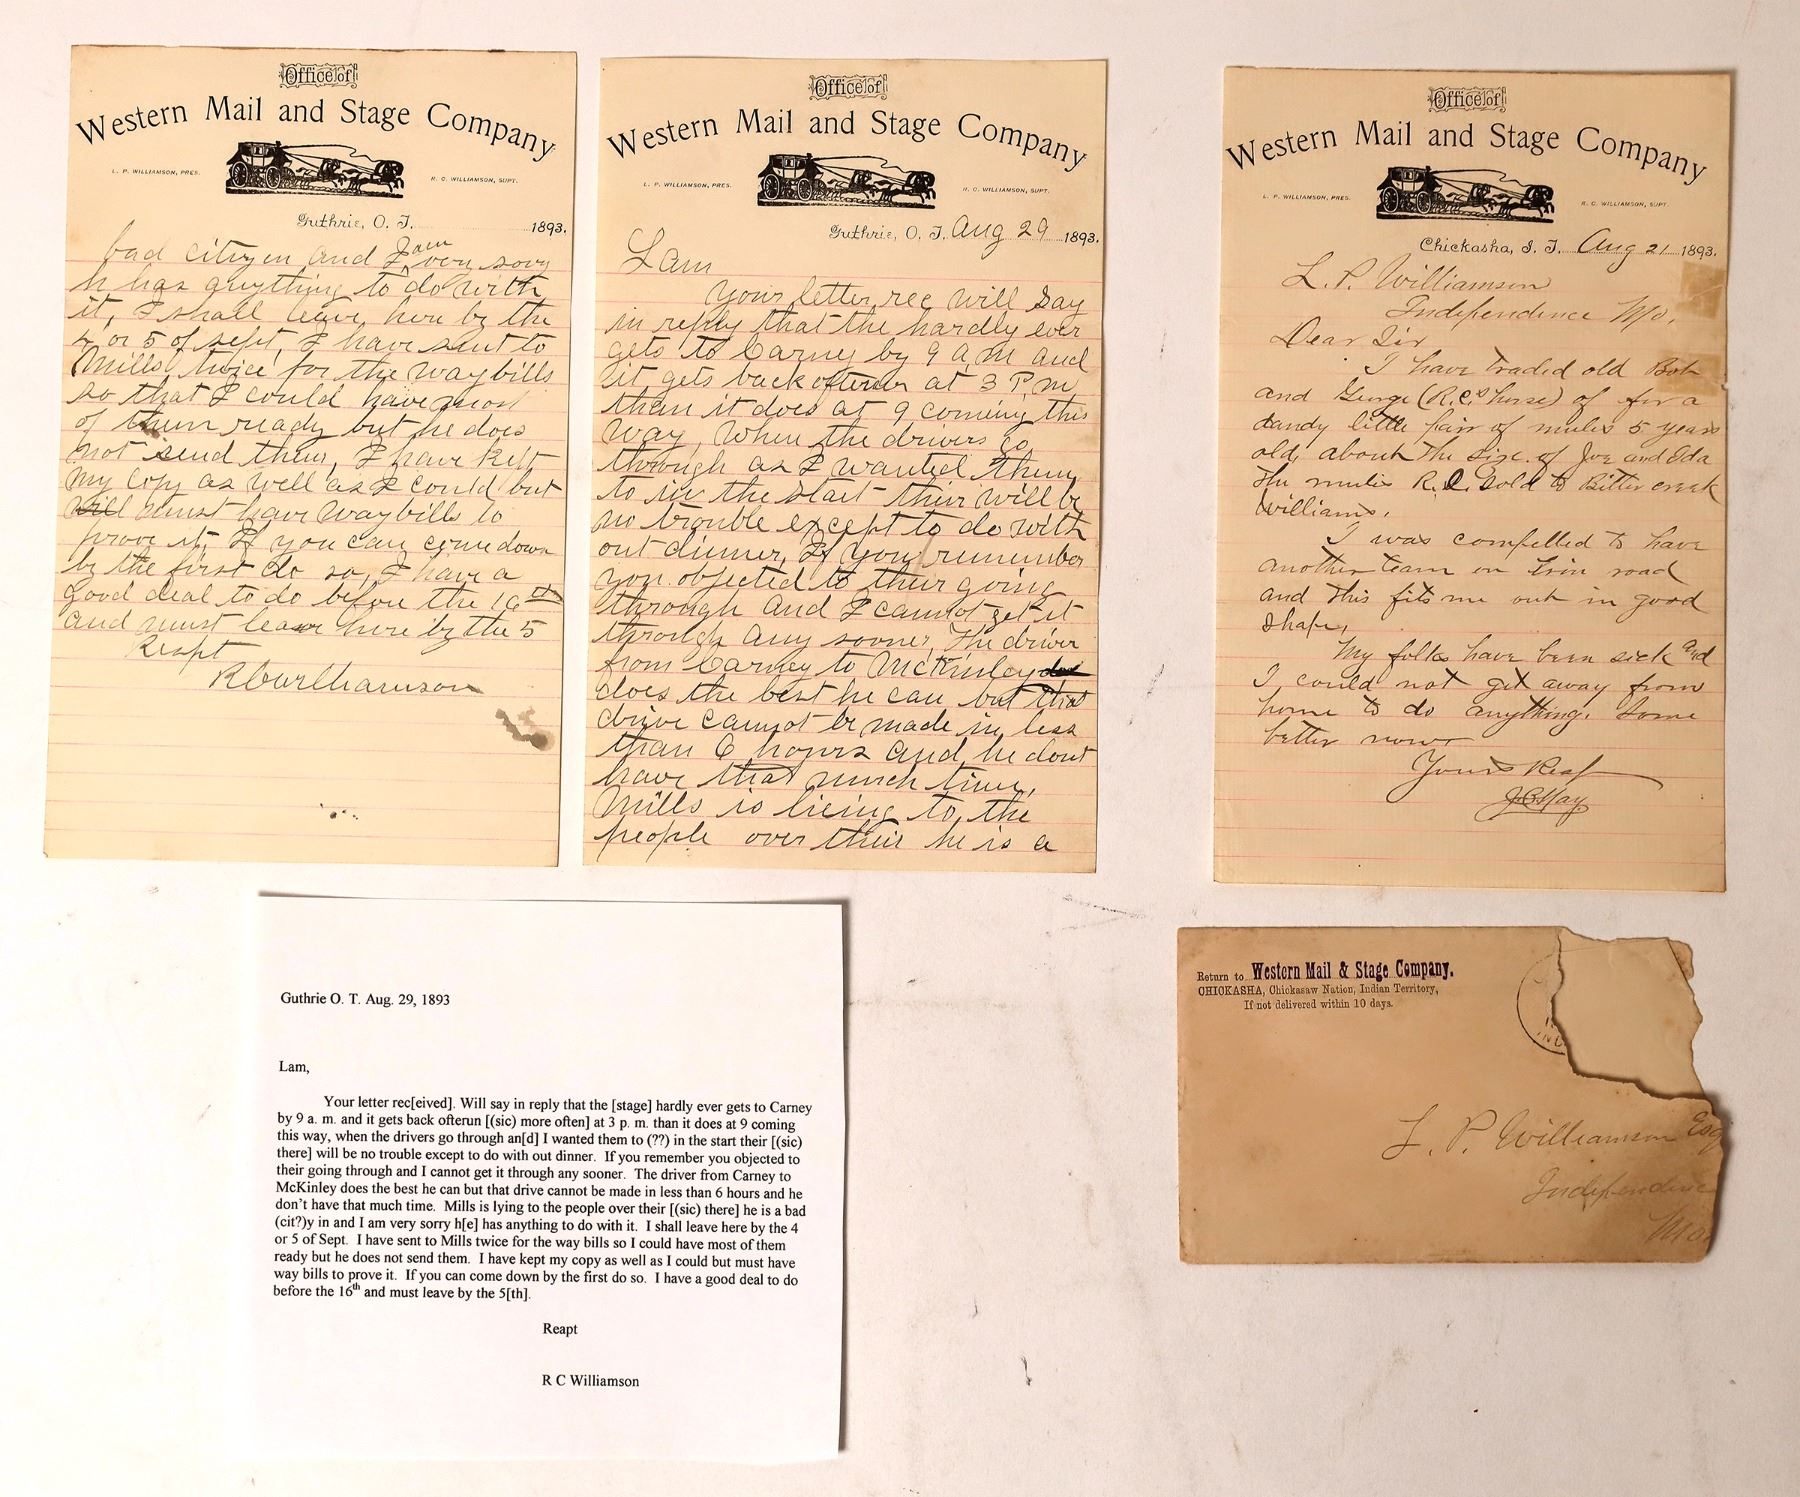 Office of
Western Mail and Stage Company
L. P. WILLIAMSON, PRES.
R. C. WILLIAMSON, SUPT.
Guthrie, O. T. 1893.
bad citizen and I am very sorry
h has anything to do with
it, I shall leave here by the
4 or 5 of sept, I have sent to
Mills twice for the way bills
so that I could have most
of them ready but he does
not send them, I have kept
my copy as well as I could but
will must have way bills to
prove it, If you can come down
by the first do so, I have a
good deal to do before the 16th
and must leave here by the 5
Reapt
R C Williamson
Office of
Western Mail and Stage Company
L. P. WILLIAMSON, PRES.
R. C. WILLIAMSON, SUPT.
Guthrie, O. T. Aug 29 1893.
Lam
Your letter rec will say
in reply that the hardly ever
gets to Carney by 9 a m and
it gets back oftener at 3 P. m
than it does at 9 coming this
way, When the drivers go
through as I wanted them
to in the start their will be
no trouble except to do with
out dinner, If you remember
you objected to their going
through and I cannot get it
through any sooner, The driver
from Carney to McKinley
does the best he can but that
drive cannot be made in less
than 6 hours and he dont
have that much time,
Mills is lieing to the
people over their he is a
Office of
Western Mail and Stage Company
L. P. WILLIAMSON, PRES.
R. C. WILLIAMSON, SUPT.
Chickasha, I. T. Aug 21 1893.
L. P. Williamson
Independence Mo.
Dear Sir
I have traded old Bob
and George (R.C.s horse) of for a
dandy little pair of mules 5 years
old, about the size of Joe and Eda
the mules R.C. sold to Bitter creek
Williams.
I was compelled to have
another team on Erin road
and this fits me out in good
shape,
My folks have been sick and
I could not get away from
home to do anything. Some
better now
Yours Resp
J C Hay
Guthrie O. T. Aug. 29, 1893
Lam,
Your letter rec[eived]. Will say in reply that the [stage] hardly ever gets to Carney
by 9 a. m. and it gets back ofterun [(sic) more often] at 3 p. m. than it does at 9 coming
this way, when the drivers go through an[d] I wanted them to (??) in the start their [(sic)
there] will be no trouble except to do with out dinner. If you remember you objected to
their going through and I cannot get it through any sooner. The driver from Carney to
McKinley does the best he can but that drive cannot be made in less than 6 hours and he
don't have that much time. Mills is lying to the people over their [(sic) there] he is a bad
(cit?)y in and I am very sorry h[e] has anything to do with it. I shall leave here by the 4
or 5 of Sept. I have sent to Mills twice for the way bills so I could have most of them
ready but he does not send them. I have kept my copy as well as I could but must have
way bills to prove it. If you can come down by the first do so. I have a good deal to do
before the 16th and must leave by the 5[th].
Reapt
R C Williamson
Return to Western Mail & Stage Company.
CHICKASHA, Chickasaw Nation, Indian Territory,
If not delivered within 10 days.
L. P. Williamson Esq
Independence
Mo.